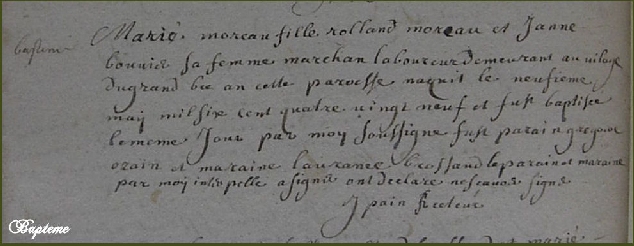 Marie moreau fille rolland moreau et Janne
bapteme
bouvier sa femme marchan laboureur demeurant au vilage
du grand bie an cette paroesse naquit le neufieme
may mil six cent quatre vingt neuf et fust baptisee
le meme Jour par moy soussigne fust parain gregoire
orain et maraine lauranee brossand le parain et maraine
par moy interpelle a signe ont declare ne scavoir signe
J pain Recteur
Bapteme
et marie